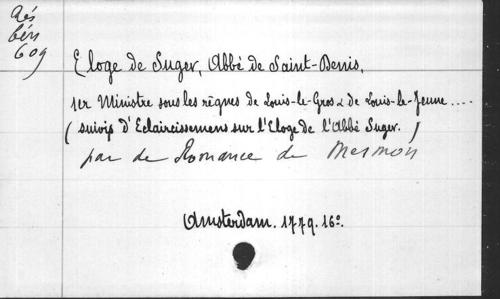 Rés
bén
609
Eloge de Suger, Abbé de Saint-Denis,
1er Ministre sous les règnes de Louis-le-Gros & de Louis-le-Jeune....
(suivis d'Eclaircissemens sur l'Eloge de l'Abbé Suger.)
par de Romance de Mesmon
Amsterdam. 1779. 16º.